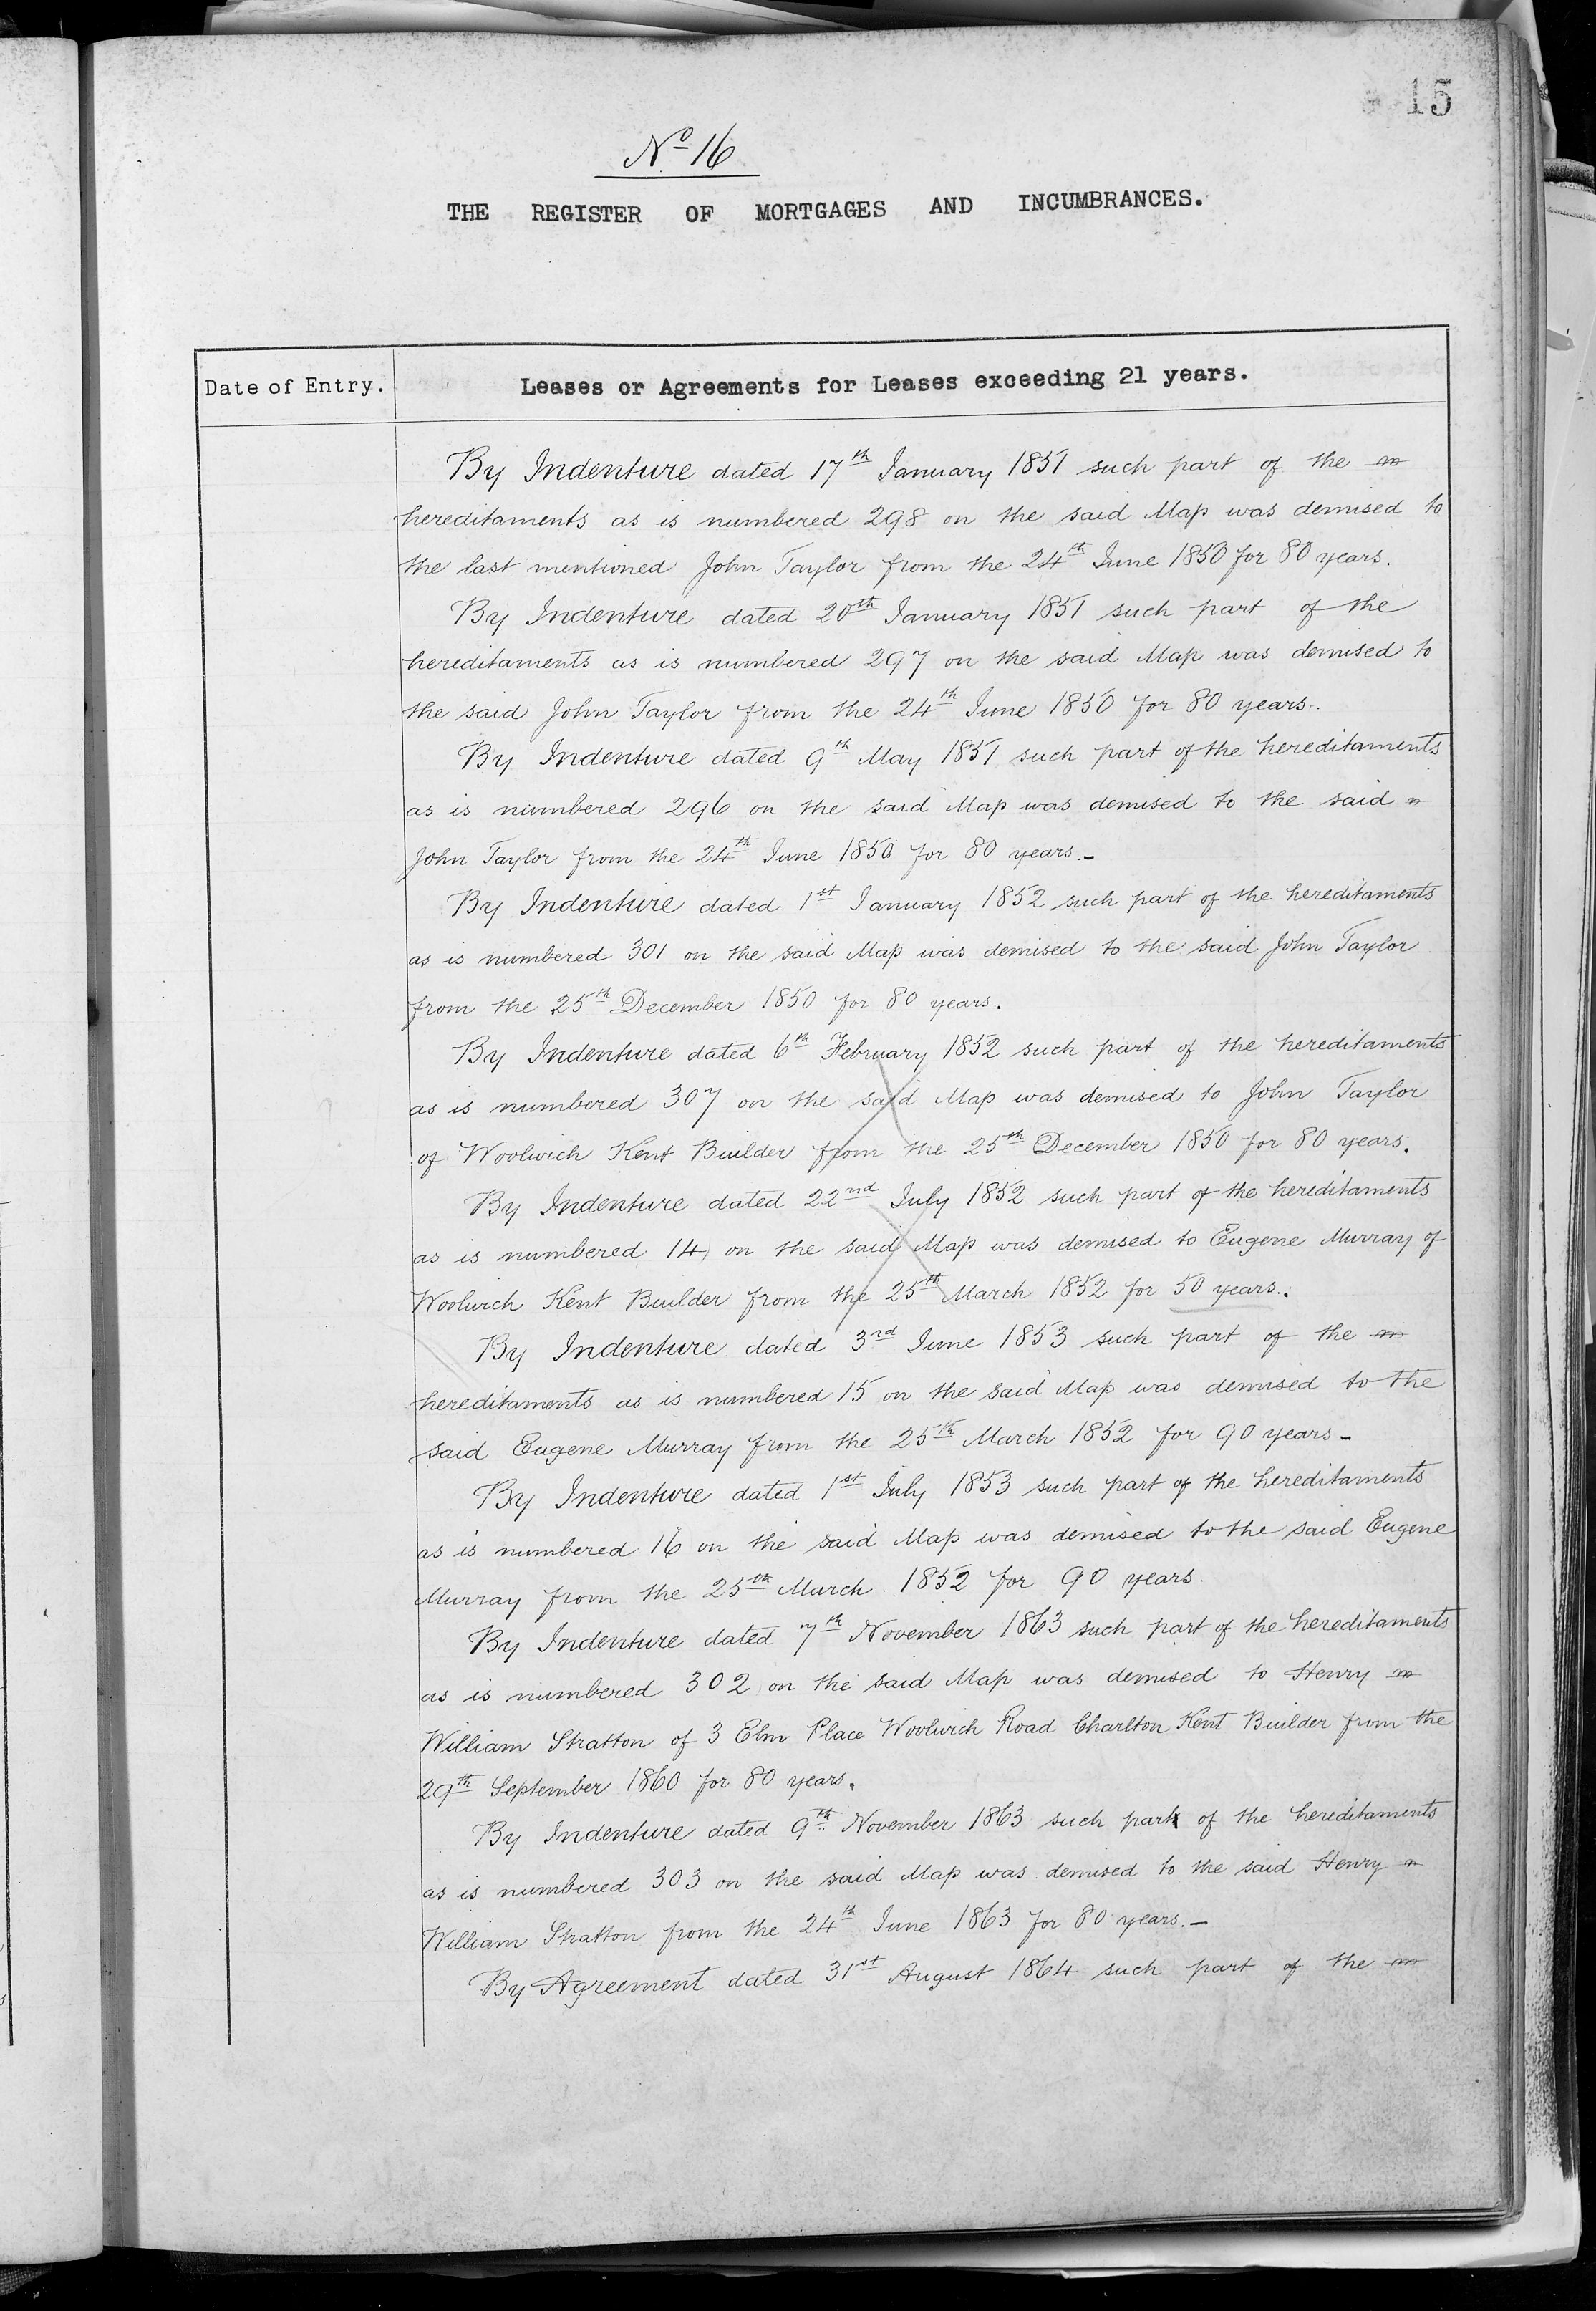 15
No 16
THE REGISTER OF MORTGAGES AND INCUMBRANCES.
Date of Entry.
Leases or Agreements for Leases exceeding 21 years.
By Indenture dated 17th January 1851 such part of the
hereditaments as is numbered 298 on the said Map was demised to
the last mentioned John Taylor from the 24th June 1850 for 80 years.
By Indenture dated 20th January 1851 such part of the
hereditaments as is numbered 297 on the said Map was demised to
the said John Taylor from the 24th June 1850 for 80 years.
By Indenture dated 9th May 1851 such part of the hereditaments
as is numbered 296 on the said Map was demised to the said
John Taylor from the 24th June 1850 for 80 years.-
By Indenture dated 1st January 1852 such part of the hereditaments
as is numbered 301 on the said Map was demised to the said John Taylor
from the 25th December 1850 for 80 years.
By Indenture dated 6th February 1852 such part of the hereditaments
as is numbered 307 on the said Map was demised to John Taylor
of Woolwich Kent Builder from the 25th December 1850 for 80 years.
By Indenture dated 22nd July 1852 such part of the hereditaments
as is numbered 14 on the said Map was demised to Eugene Murray of
Woolwich Kent Builder from the 25th March 1852 for 50 years.
By Indenture dated 3rd June 1853 such part of the
hereditaments as is numbered 15 on the said Map was demised to the
said Eugene Murray from the 25th March 1852 for 90 years-
By Indenture dated 1st July 1853 such part of the hereditaments
as is numbered 16 on the said Map was demised to the said Eugene
Murray from the 25th March 1852 for 90 years.
By Indenture dated 7th November 1863 such part of the hereditaments
as is numbered 302 on the said Map was demised to Henry
William Stratton of 3 Elm Place Woolwich Road Charlton Kent Builder from the
29th September 1860 for 80 years.
By Indenture dated 9th November 1863 such part of the hereditaments
as is numbered 303 on the said Map was demised to the said Henry
William Stratton from the 24th June 1863 for 80 years.-
By Agreement dated 31st August 1864 such part of the